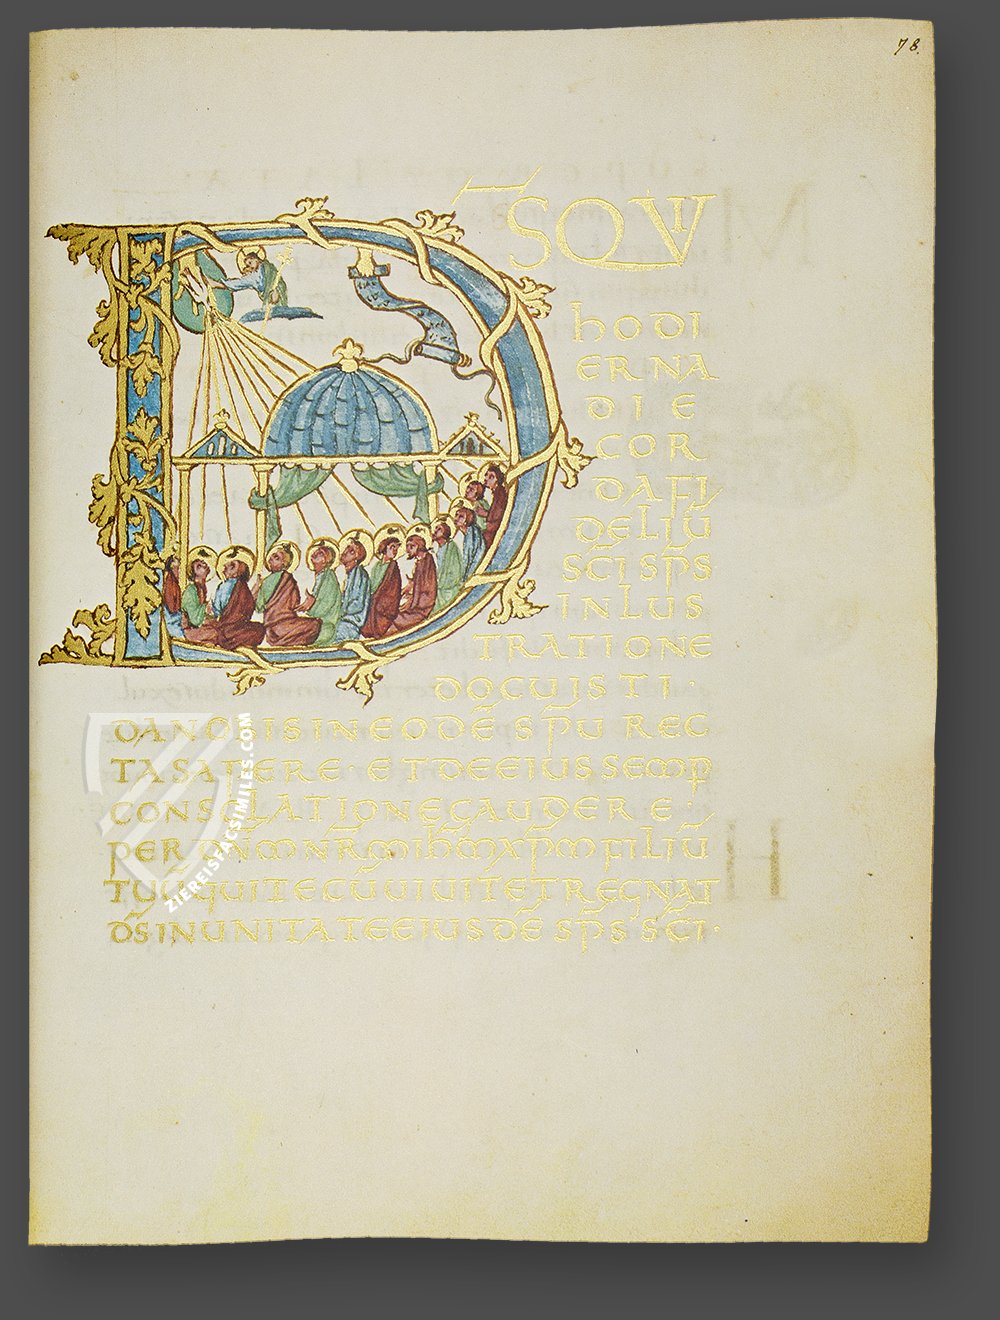 78.
DS QVI
hODI
ERNA
DIE
COR
DA FI
DELIŪ
SCI SPS
INLUS
TRATIONE
DOCUISTI·
DA NOBIS IN EODĒ SPU REC
TA SAPERE· ET DE EIUS SEMP
CONSOLATIONE GAUDERE·
PER DNM NRM IHM XPM FILIŪ
TUŪ QUI TECŪ UIUIT ET REGNAT
DS IN UNITATE EIUSDĒ SPS SCI·
ZIEREISFACSIMILES.COM